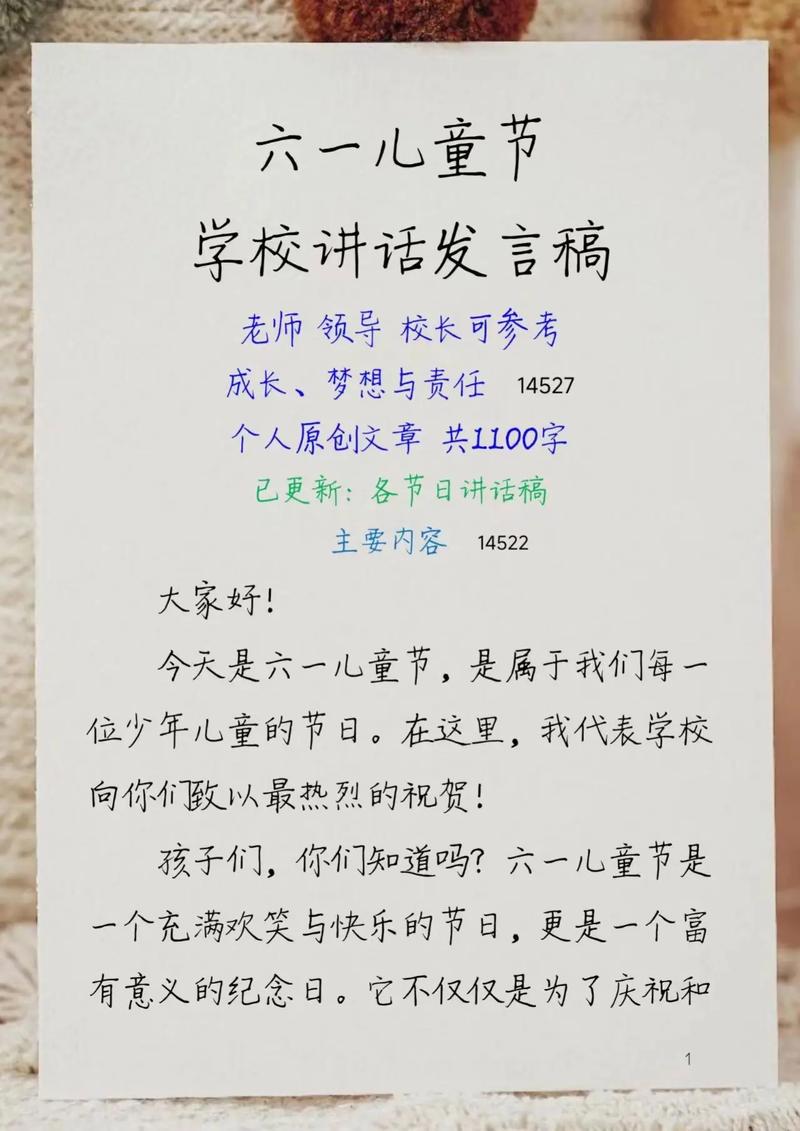 六一儿童节
学校讲话发言稿
老师 领导 校长可参考
成长、梦想与责任 14527
个人原创文章 共1100字
已更新：各节日讲话稿
主要内容 14522
大家好！
今天是六一儿童节，是属于我们每一
位少年儿童的节日。在这里，我代表学校
向你们致以最热烈的祝贺！
孩子们，你们知道吗？六一儿童节是
一个充满欢笑与快乐的节日，更是一个富
有意义的纪念日。它不仅仅是为了庆祝和
1